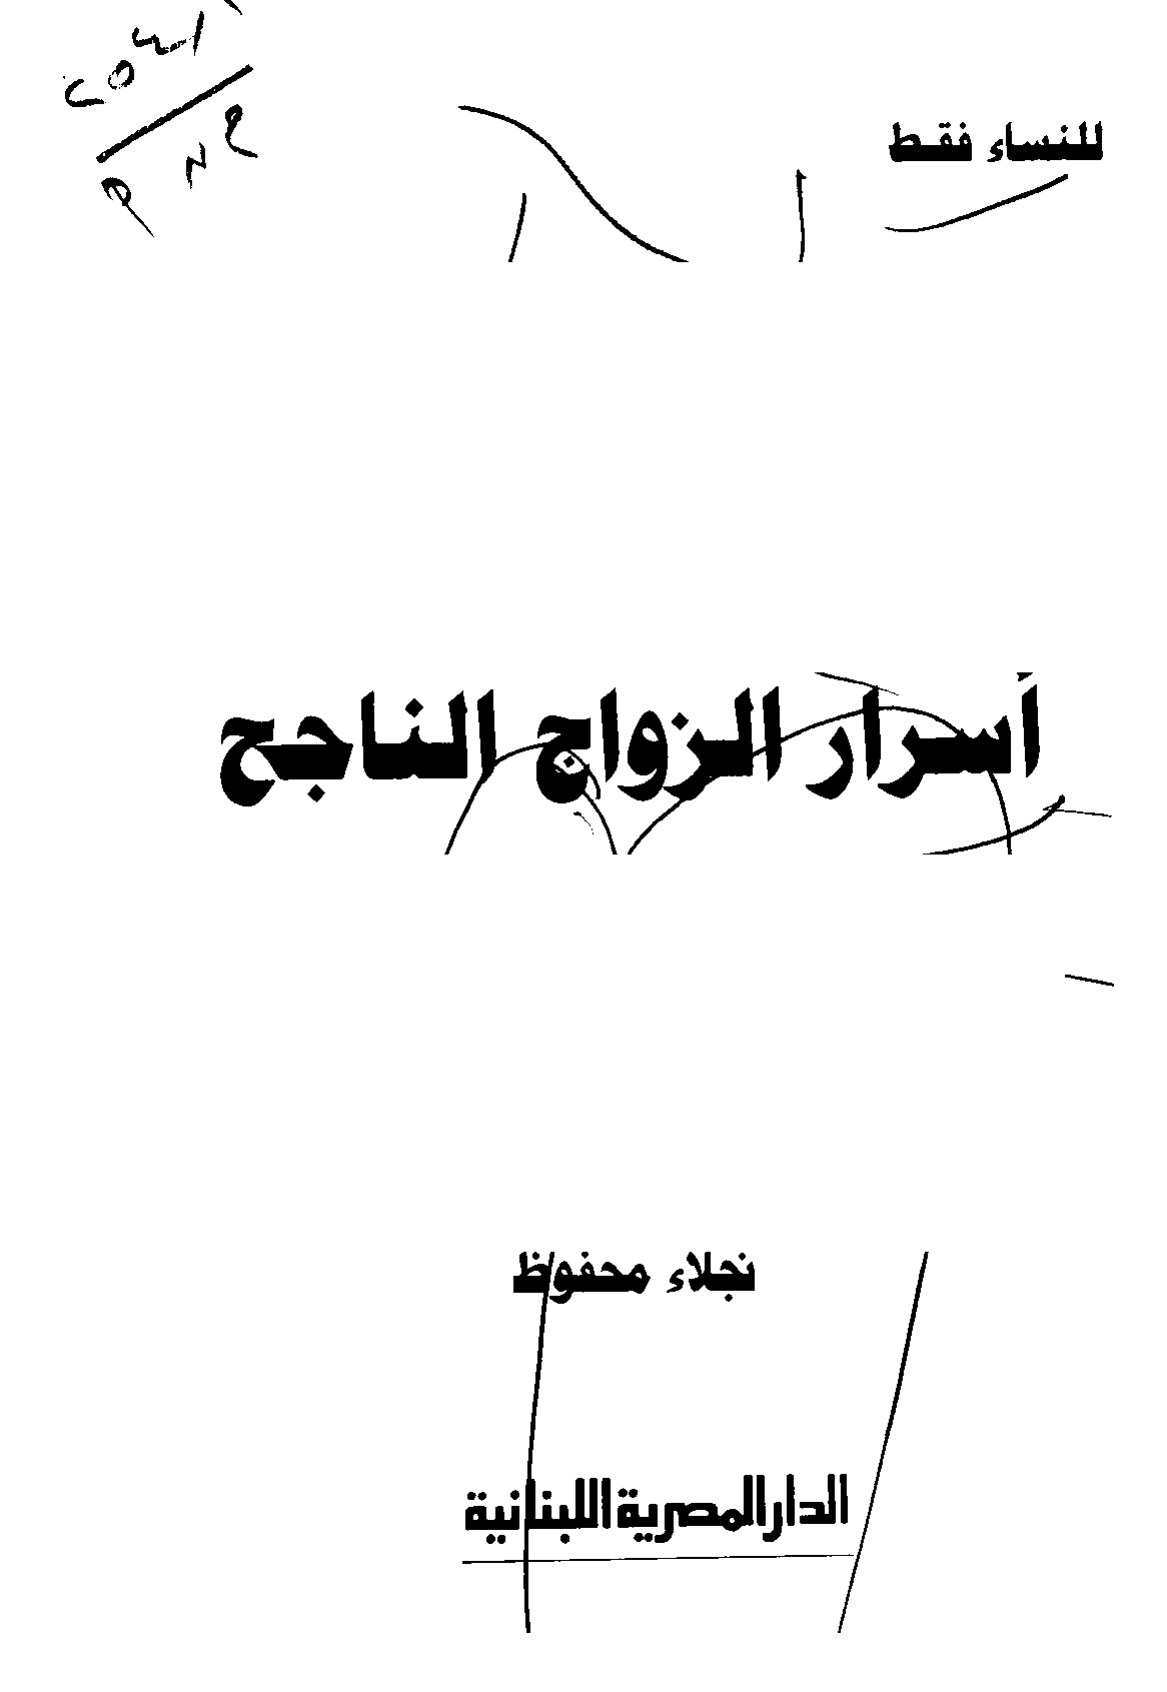 للنساء فقط
أسرار الزواج الناجح
نجلاء محفوظ
الدار المصرية اللبنانية